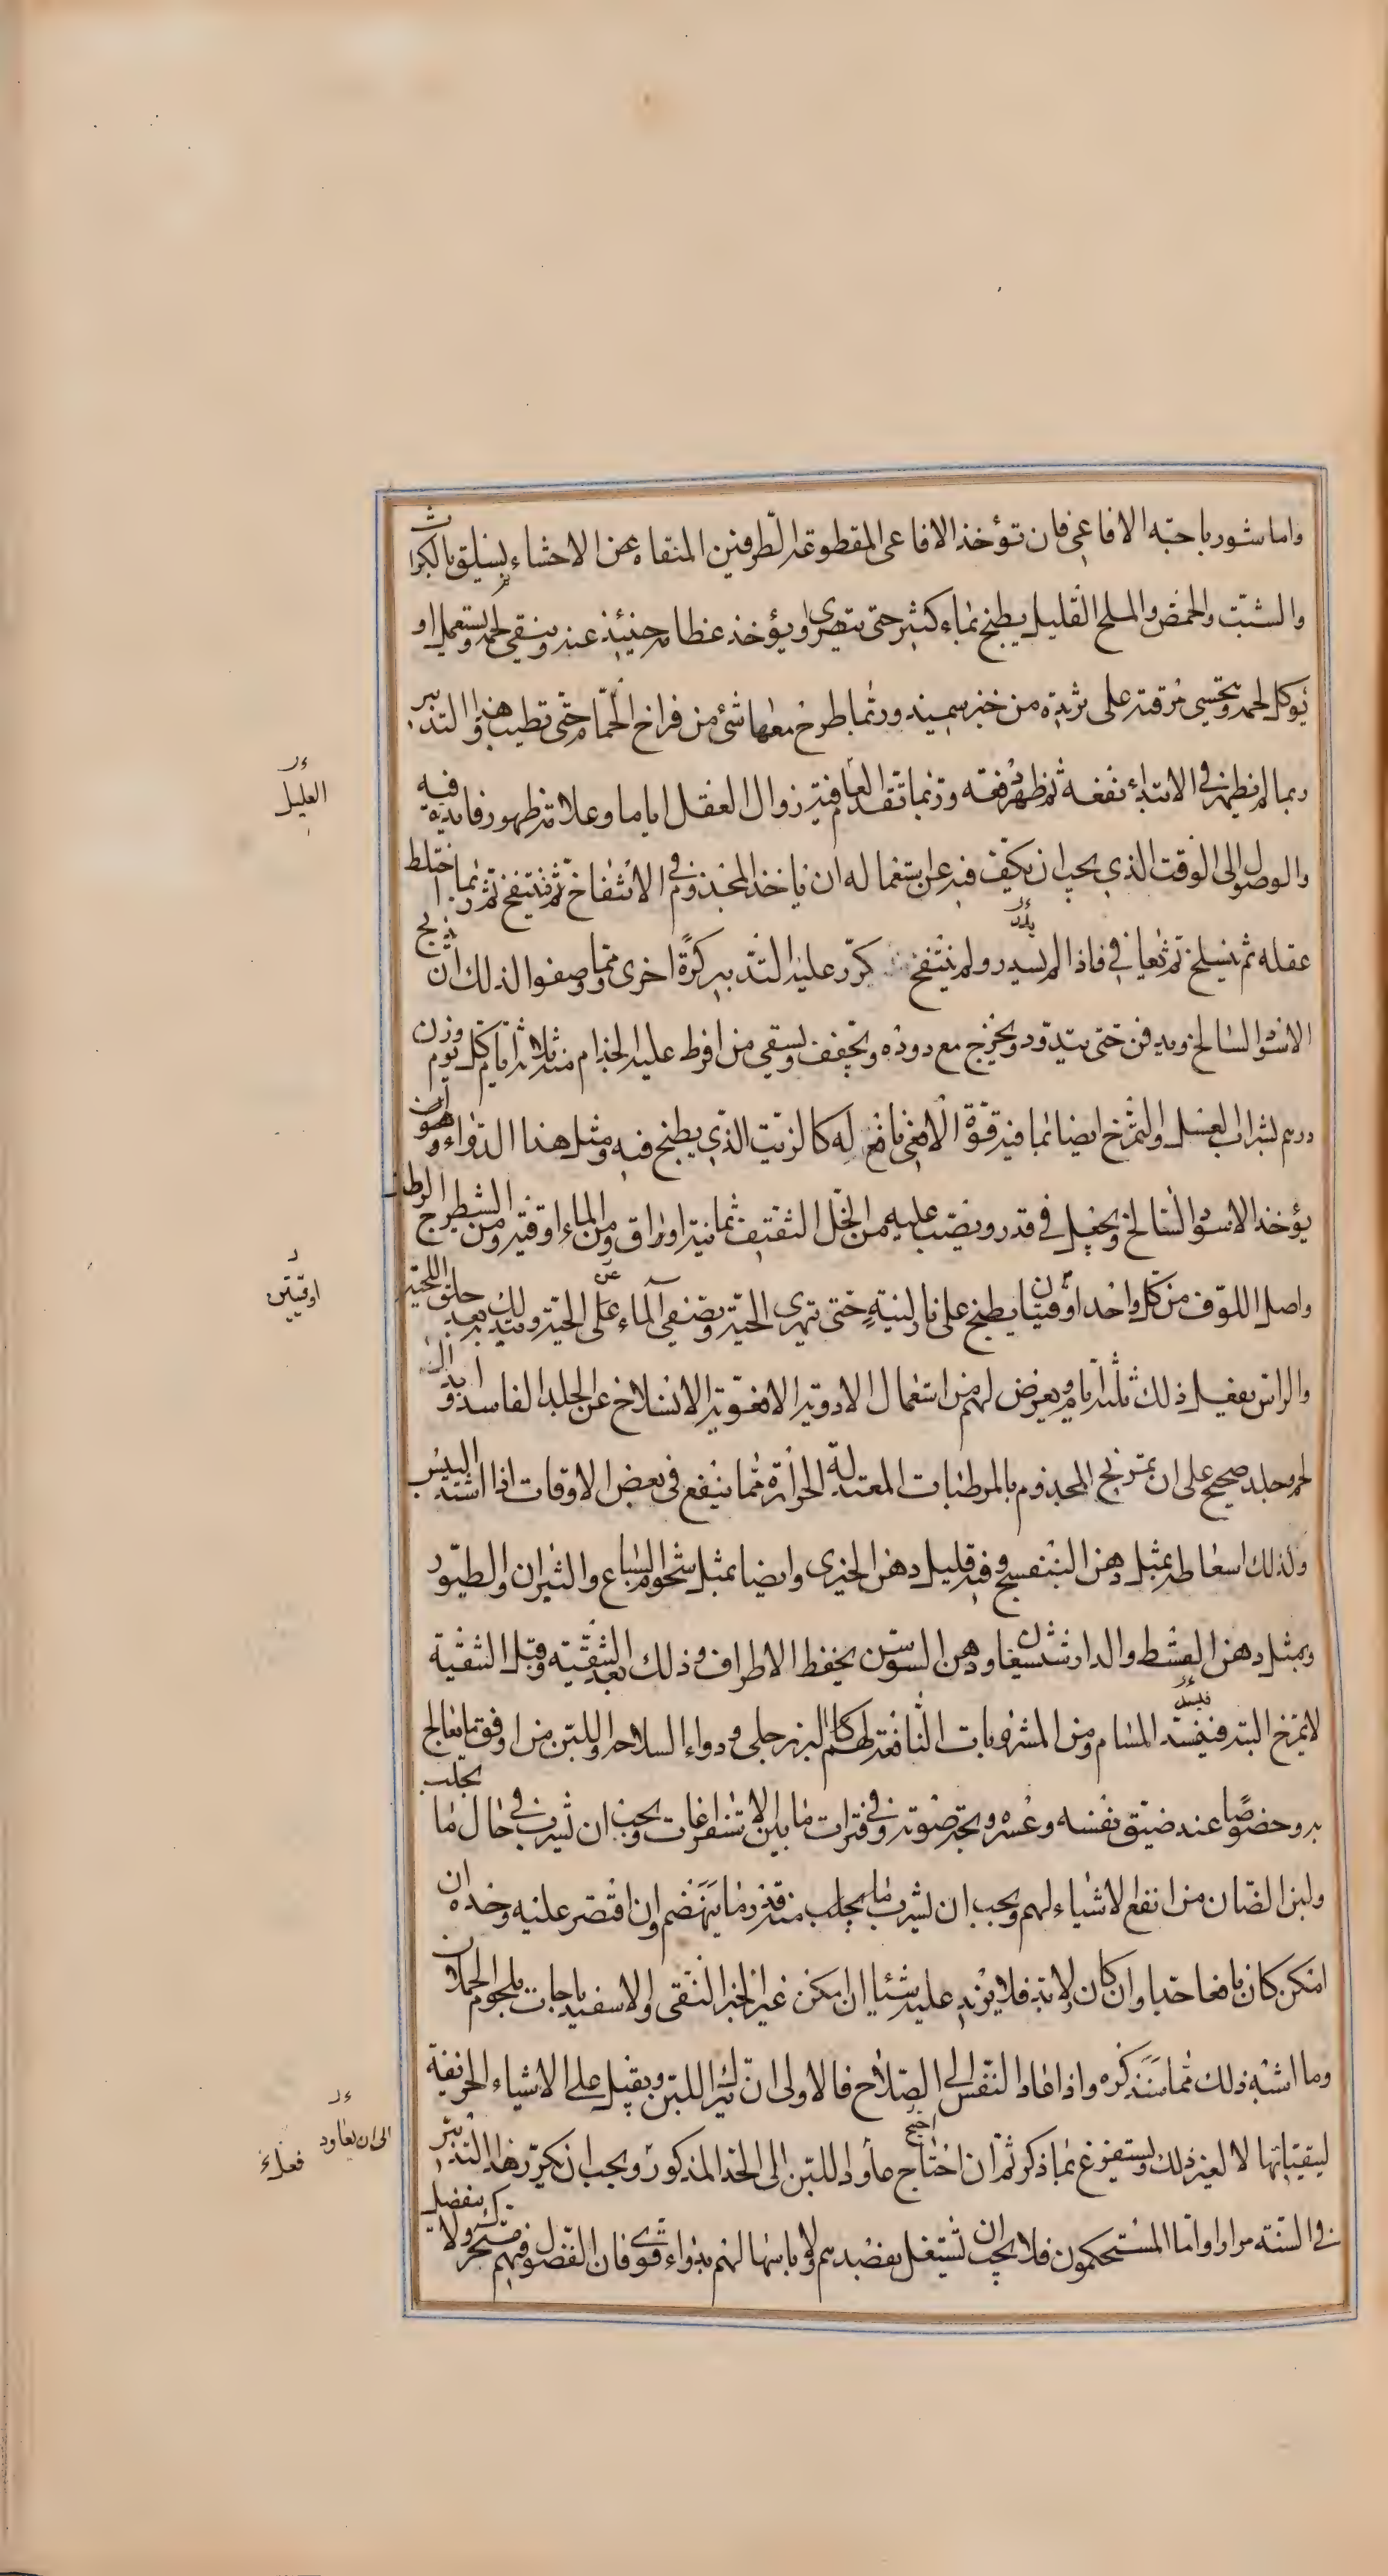 واما شورباجته الافاعي فان تؤخذ الافاعى المقطوعة الطرفين المنقاه عن الاحشاء يسلق بالكراث
والشبت والحمص والملح القليل يطبخ بماء كثير حتى يتهرى ويؤخذ عظامه حينئذ عنه وينقى لحمه ويستعمل او
يوكل لحمه ويحتسى مرقته على ثردة من خبز سميد وربما طرح معها شئ من فراخ الحمام حتى تطيب وهذا التدبير
ربما لم يظهر في الابتداء نفعه ثم ظهر نفعه وربما تقدم العافية زوال العقل اياما وعلامة ظهور فايدته فيه
والوصول الى الوقت الذي يجب ان يكف فيه عن استعماله ان ياخذ المجذوم في الانتفاخ ثم ينتفخ ثم ربما اختلط
عقله ثم ينسلخ ثم يعافى فاذا لم يسدر ولم ينتفخ كرر عليه التدبير كرة اخرى ومما وصفوا لذلك ان يذبح
الاسود السالخ ويدفن حتى يتدود ويخرج مع دوده ويجفف ويسقى من افرط عليه الجذام منه ثلاثة ايام كل يوم وزن
درهم بشراب العسل والتمرخ ايضا بما فيه قوة الافعى نافع له كالزيت الذي يطبخ فيه ومثل هذا الدواء وهو ان
يؤخذ الاسود السالخ ويجعل في قدر ويصب عليه من الخل الثقيف ثمانية اوراق ومن الماء اوقية ومن الشيطرج الرطب
واصل اللوف من كل واحد اوقيتان يطبخ على نار لينة حتى تهرى الحية ويصفى الماء عن الحية ويتدلك به بعد حلق اللحية
والراس يفعل ذلك ثلثة ايام ويعرض لهم من استعمال الادوية الافعوية الانسلاخ عن الجلد الفاسد
لحم وجلد صحيح على ان تمريخ المجذوم بالمرطبات المعتدلة الحرارة مما ينفع في بعض الاوقات اذا اشتد اليبس
ولذلك اسعاطه بمثل دهن البنفسج وفيه قليل دهن الخيرى وايضا بمثل شحوم السباع والثيران والطيور
وبمثل دهن القسط والدارشيشعان ودهن السوسن يحفظ الاطراف وذلك بعد التنقية وقبل التنقية
لا يمرخ البتة فيفسد المسام ومن المشروبات النافعة لهم كالبزرجلى ودواء السلاحه واللبن من اوفق ما يعالج
به وخصوصًا عند ضيق نفسه وعسره وبحة صوته وفي فترات ما بين الاستفراغات ويجب ان يشرب في حال ما يحلب
ولبن الضان من انفع الاشياء لهم ويجب ان يشرب ما يحلب منه قدر ما ينهضم وان اقتصر عليه وحده ان
امكن كان نافعا جدا وان كان لا بد فلا يزيد عليه شئا ان امكن غير الخبز النقى والاسفيدباجات بلحوم الحملان
وما اشبه ذلك مما سنذكره واذا عاد النفس الى الصلاح فالاولى ان يترك اللبن ويقبل على الاشياء الحريفة
ليتقيا بها لا لغير ذلك ويستفرغ بما ذكر ثم ان احتاج عاود اللبن الى الحد المذكور ويجب ان يكرر هذا التدبير
في السنة مرارا واما المستحكمون فلا يجب ان تشتغل بفصدهم ولا باسهالهم بدواء قوى فان الفضول فيهم تتحرك ولا ينفصل
العليل
اوقيتين
الى ان يعاود
فعلء